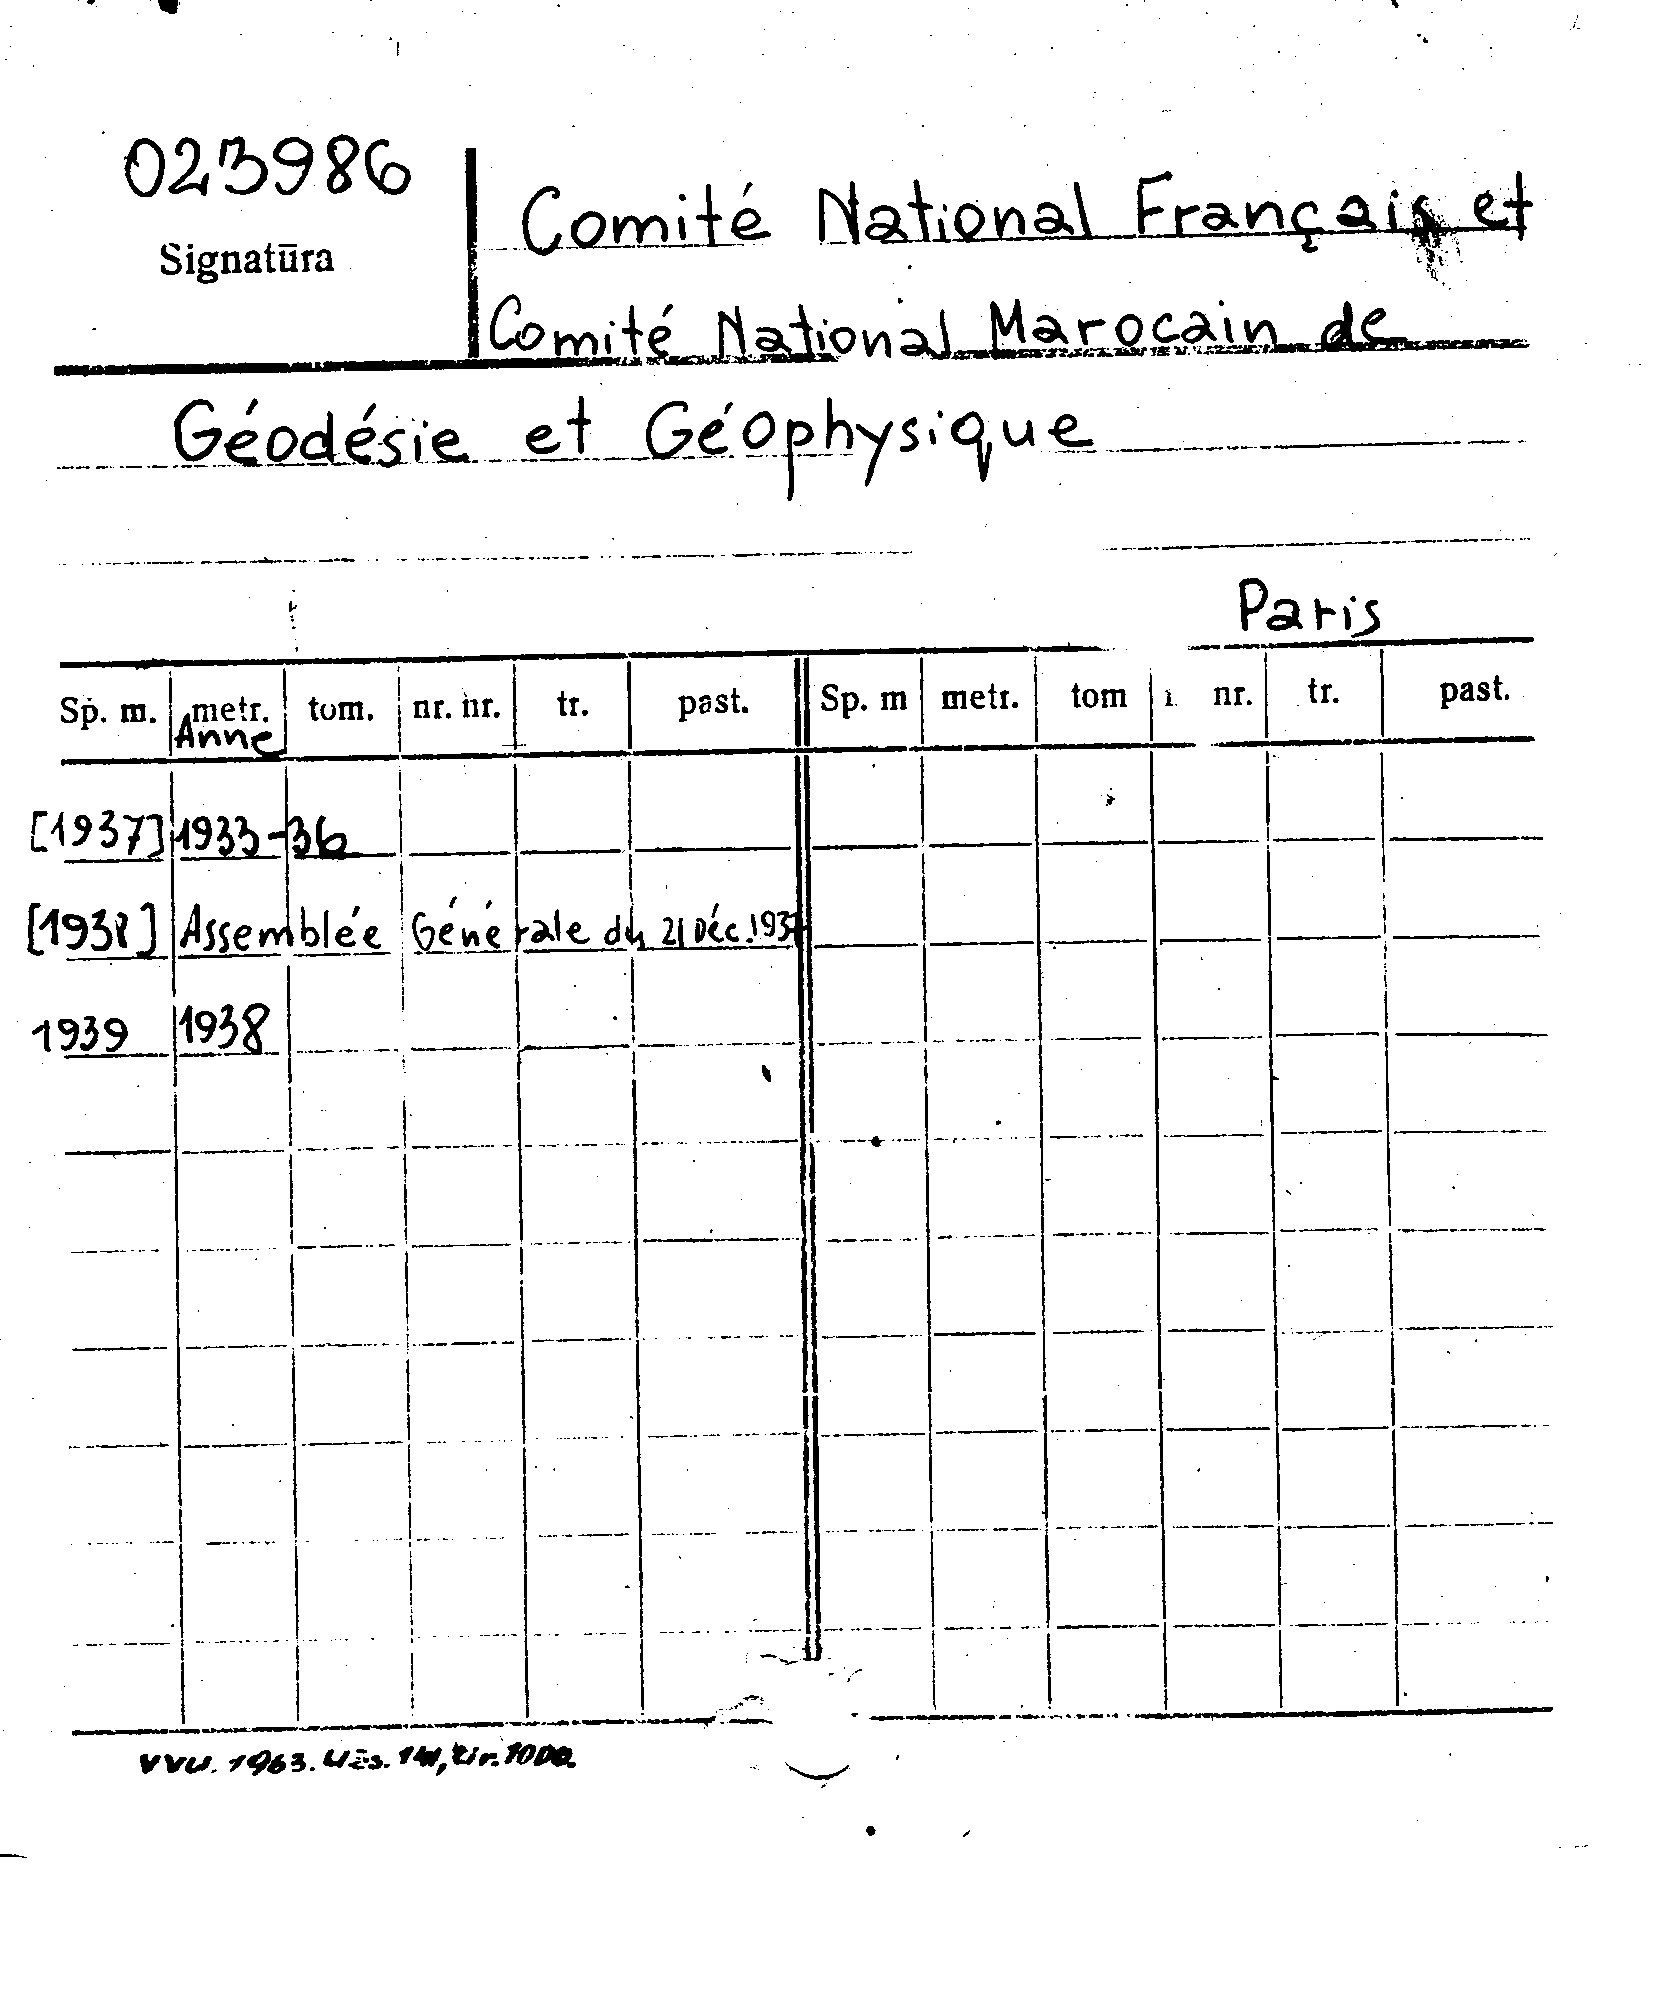 023986
Signatūra
Comité National Français et
Comité National Marocain de
Géodésie et Géophysique
Paris
Sp. m. metr. tom. nr. nr. tr. past. Sp. m metr. tom nr. tr. past.
Anne
[1937] 1933-36
[1938] Assemblée Générale du 21 Déc. 1937
1939 1938
VVU. 1963. Užs. 141, tir. 1000.